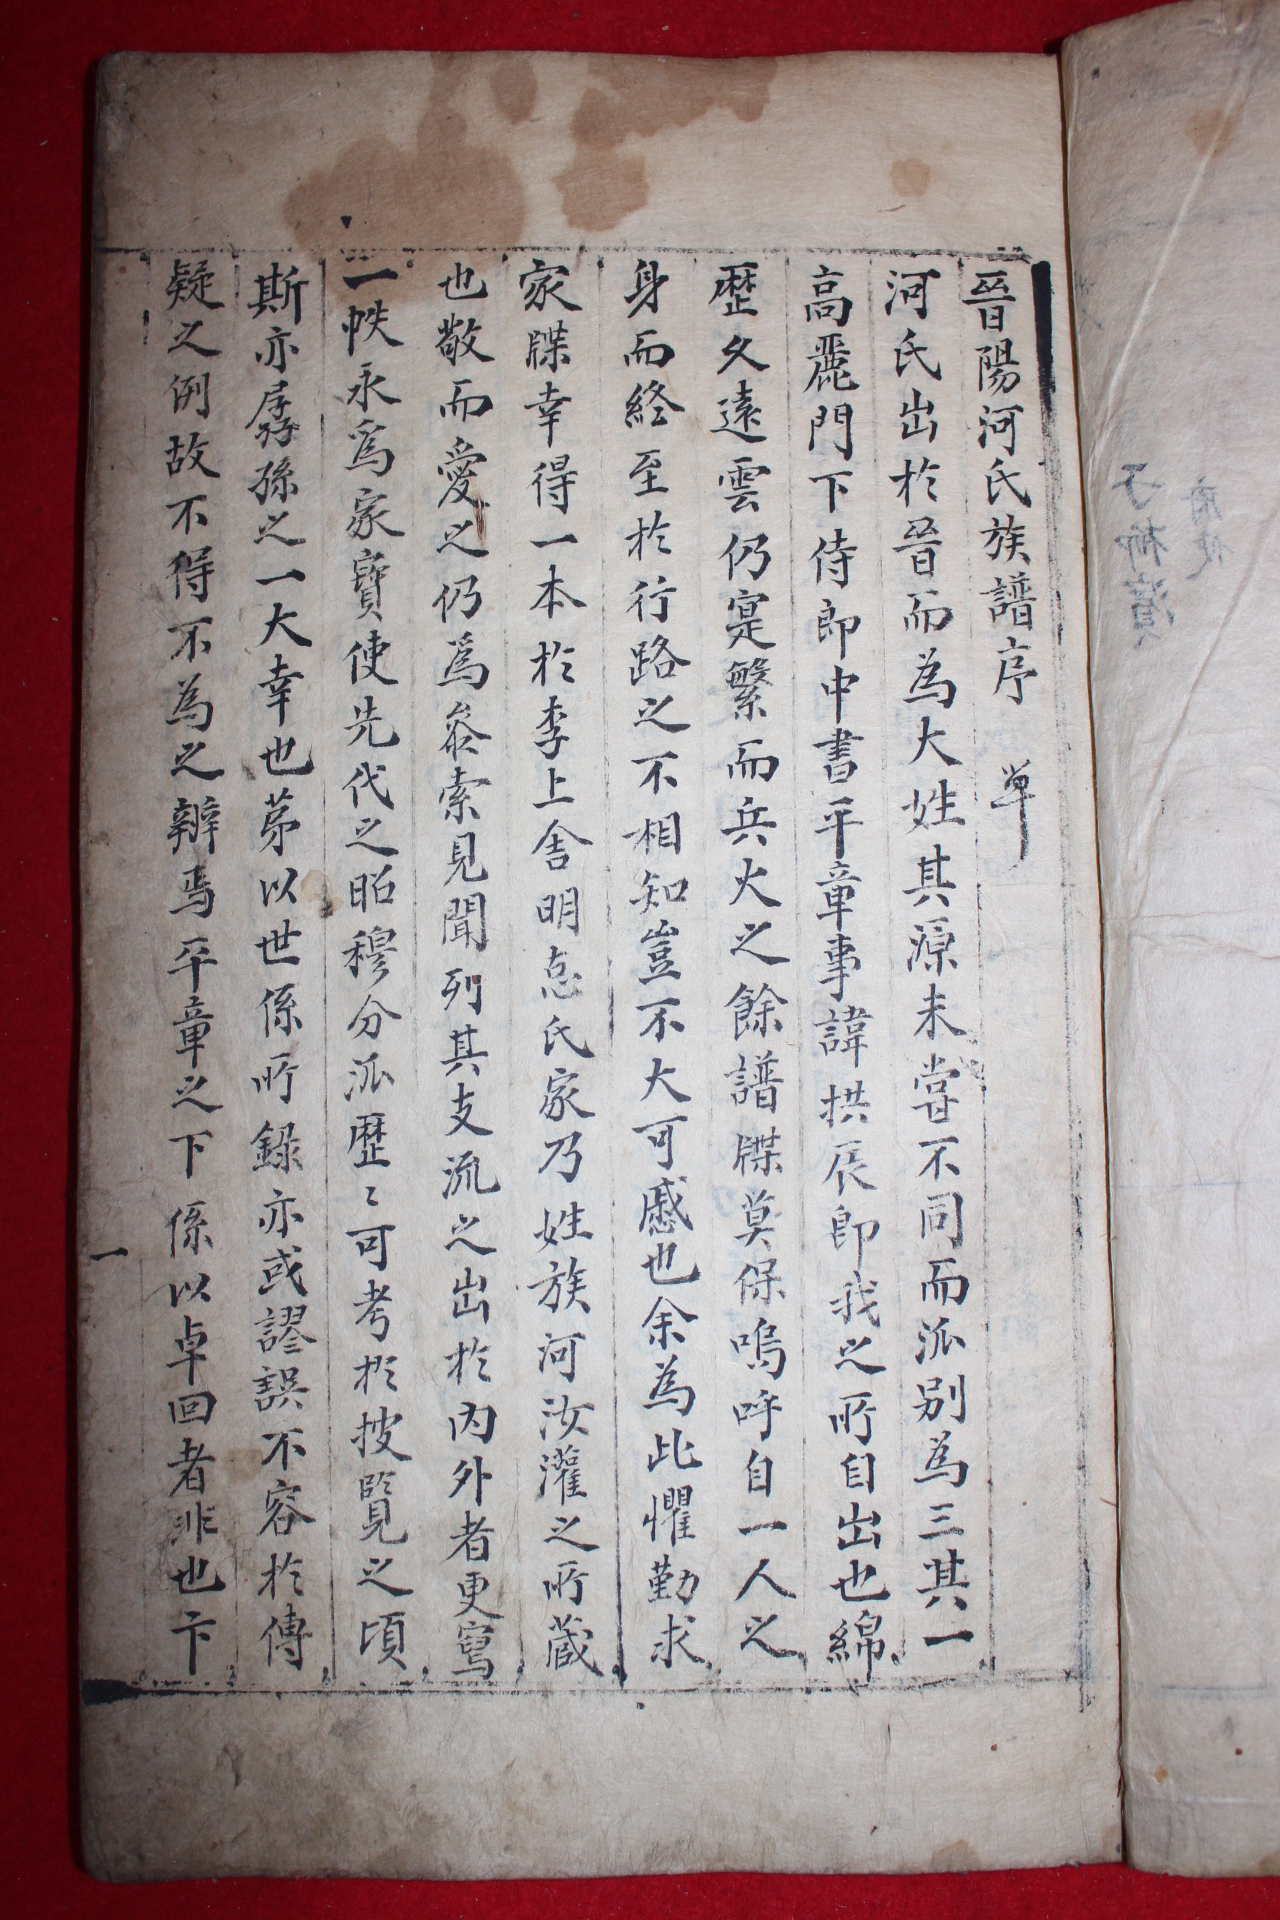 晉陽河氏族譜序 單
河氏出於晉而為大姓其源未嘗不同而派别為三其一
高麗門下侍郎中書平章事諱拱辰卽我之所自出也綿
歷久遠雲仍寔繁而兵火之餘譜牒莫保嗚呼自一人之
身而終至於行路之不相知豈不大可慼也余為此懼勤求
家牒幸得一本於李上舍明怘氏家乃姓族河汝灌之所蔵
也敬而愛之仍爲叅索見聞列其支流之出於內外者更寫
一帙永爲家寶使先代之昭穆分派歷〻可考於披覽之頃
斯亦孱孫之一大幸也苐以世係所錄亦或謬誤不容於傳
疑之例故不得不為之辨焉平章之下係以卓回者非也卞
一